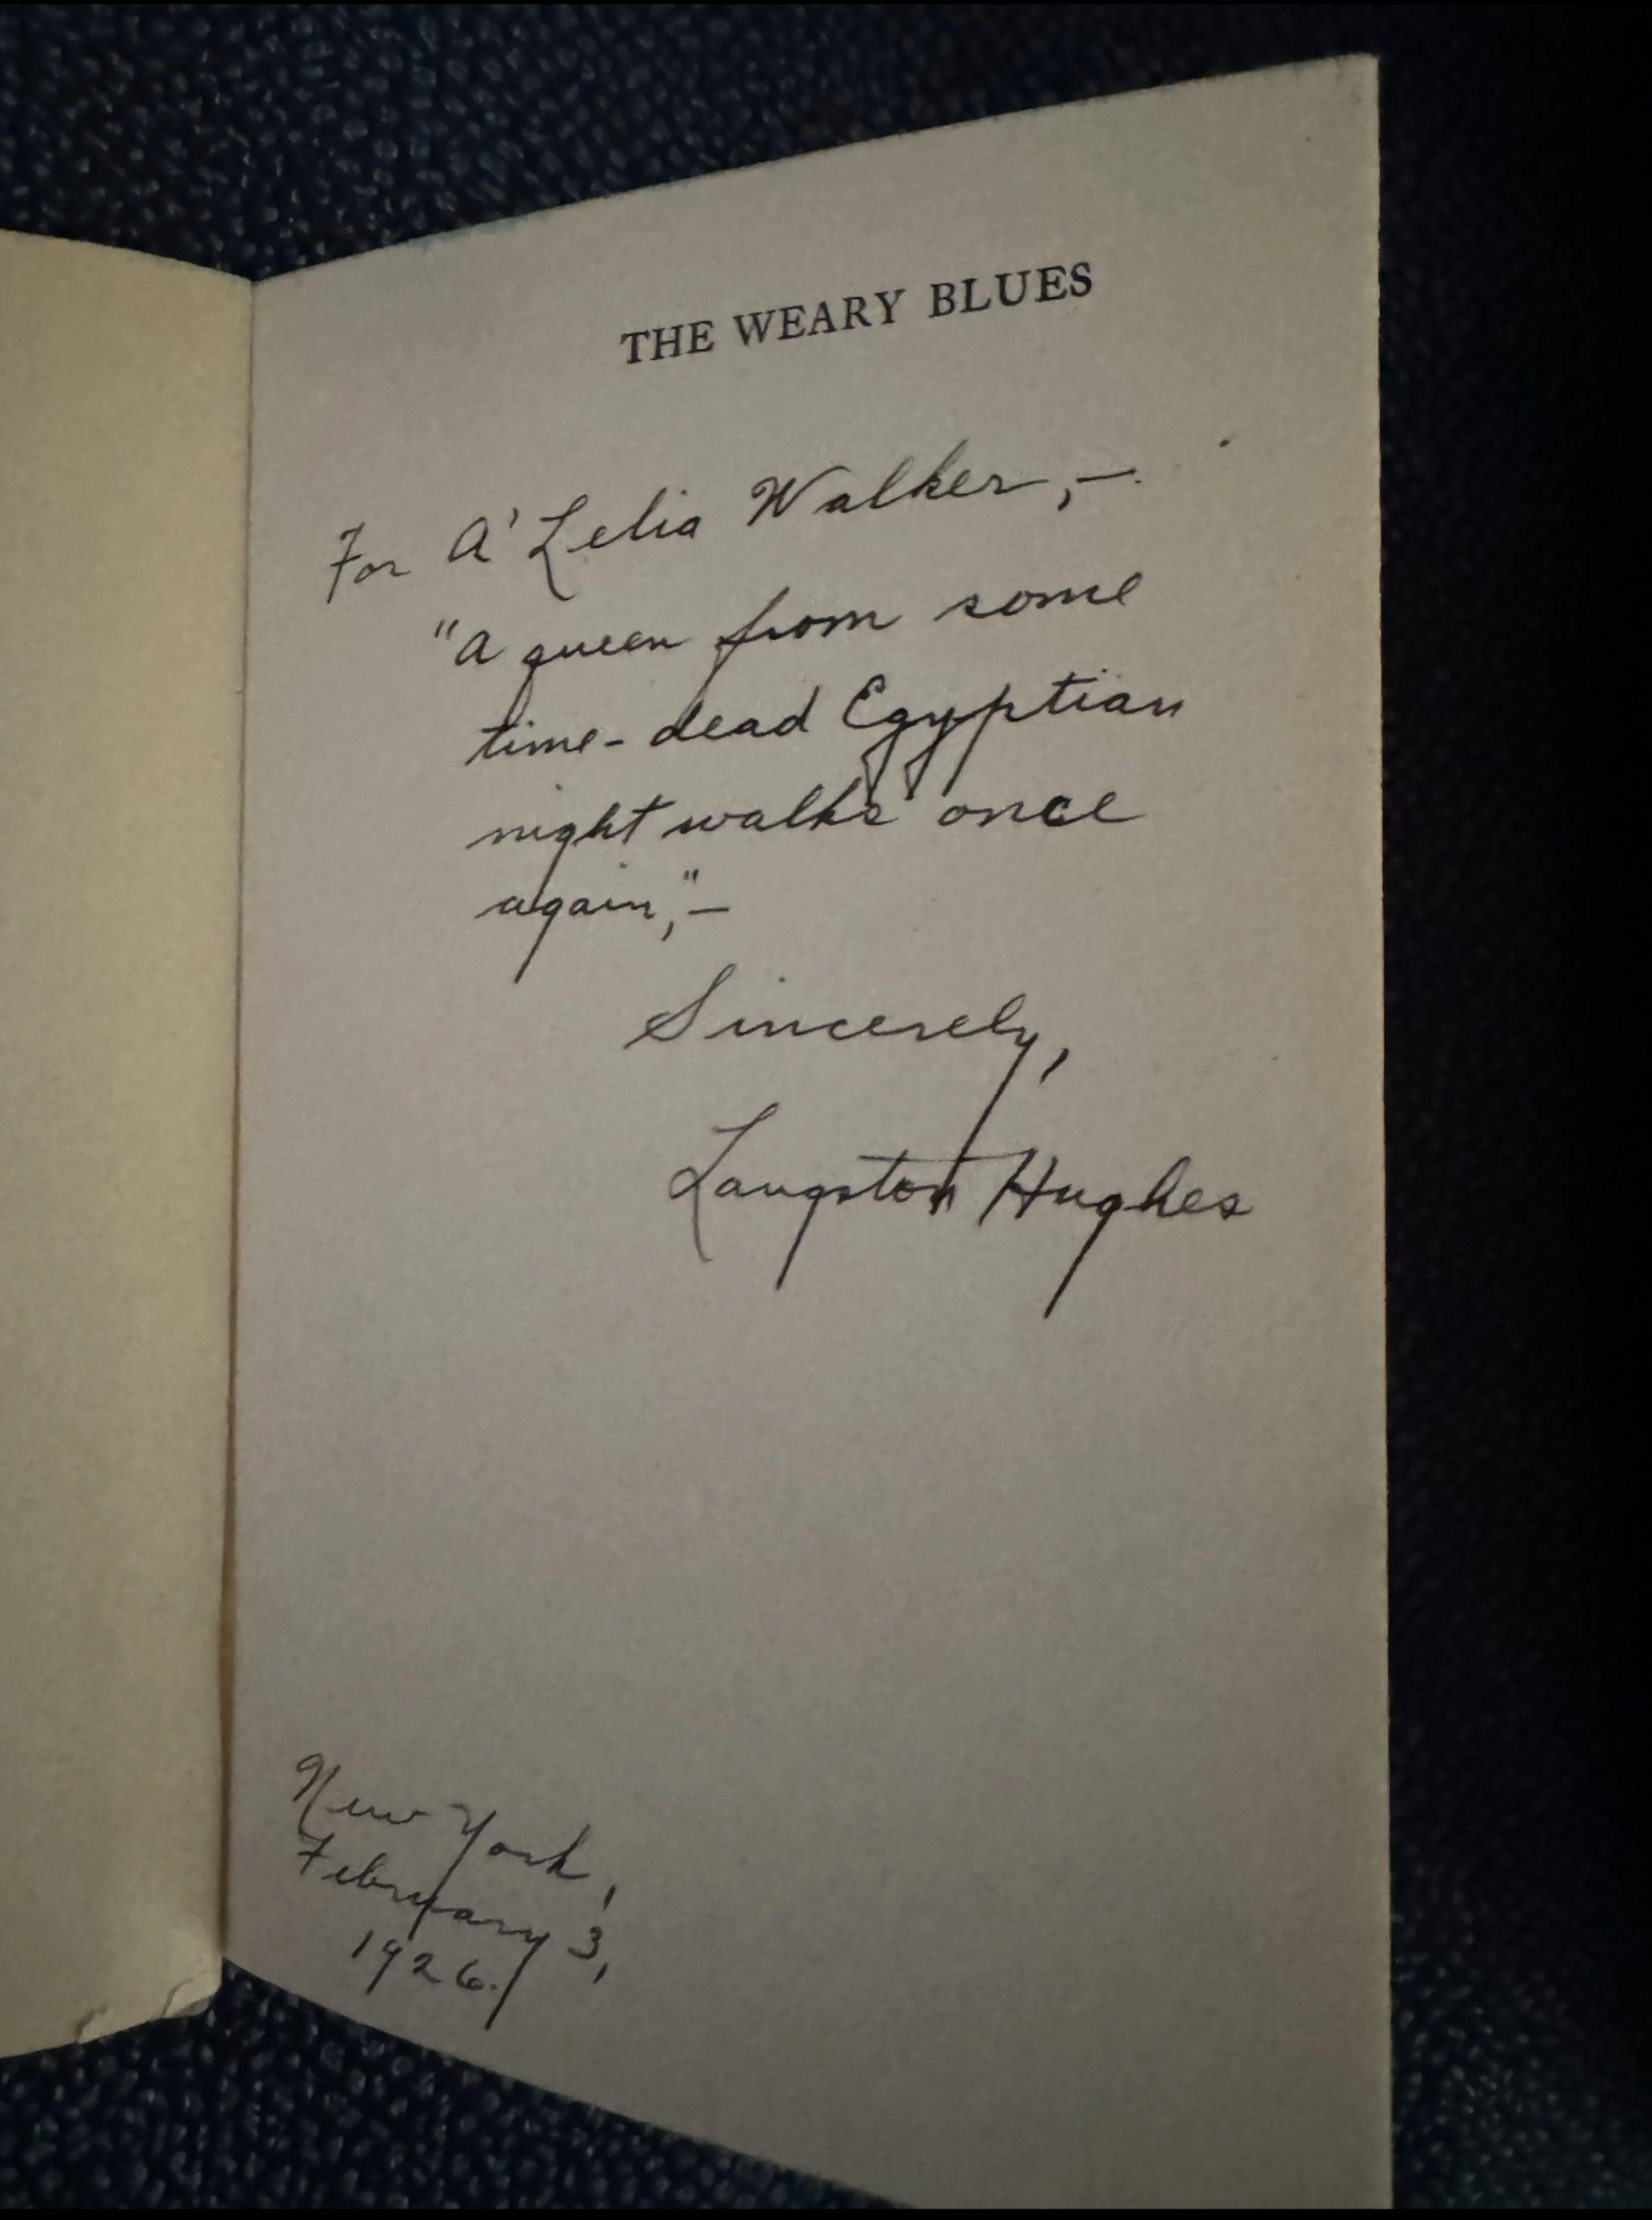 THE WEARY BLUES
For A'Lelia Walker,—
"A queen from some
time-dead Egyptian
night walks once
again,"—
Sincerely,
Langston Hughes
New York,
February 3,
1926.